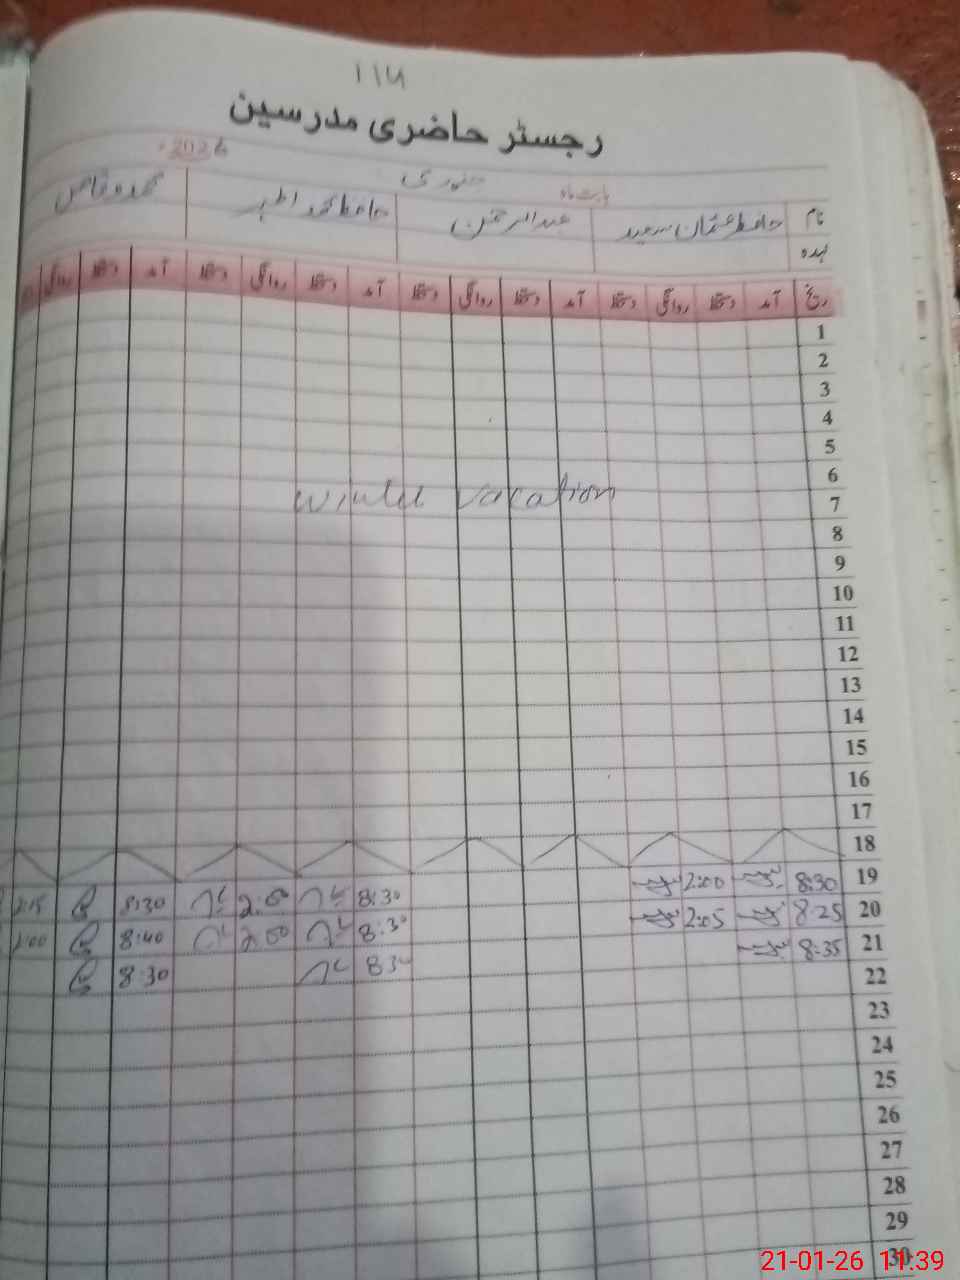 ۱۱۷
رجسٹر حاضری مدرسین
بابت ماہ جنوری 2026ء
نام حافظ عثمان سعید عبدالرحمٰن حافظ محمد اطہر محمد وقاص
عہدہ
تاریخ آمد دستخط روانگی دستخط آمد دستخط روانگی دستخط آمد دستخط روانگی دستخط آمد دستخط روانگی
1
2
3
4
5
6
7 Winter vacation
8
9
10
11
12
13
14
15
16
17
18
19 8:30 2:00 8:30 2:00 8:30 2:15
20 8:25 2:05 8:30 2:00 8:40 2:00
21 8:35 8:30 8:30
22
23
24
25
26
27
28
29
30
21-01-26 11:39